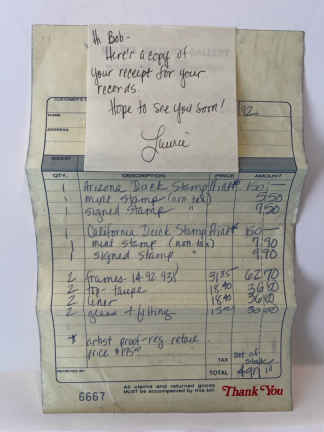 Hi Bob-
Here's a copy of
your receipt for your
records.
Hope to see you soon!
Laurie
GALLERY
CUSTOMER'S
NAME
ADDRESS
QTY. DESCRIPTION PRICE AMOUNT
1 Arizona Duck Stamp Print 150.—
1 mint stamp (non tax) 5.50
1 signed stamp " 9.50
1 California Duck Stamp Print 150—
1 mint stamp (non tax) 9.90
1 signed stamp "
2 frames- 14-92-931 31.35 62.70
2 top- taupe 18.40 36.80
2 liner 18.40 36.80
2 glass + fitting 15.00 30.00
* artist proof- reg. retail
price $175
TAX out of
state
TOTAL
6667 All claims and returned goods
MUST be accompanied by this bill.
Thank You